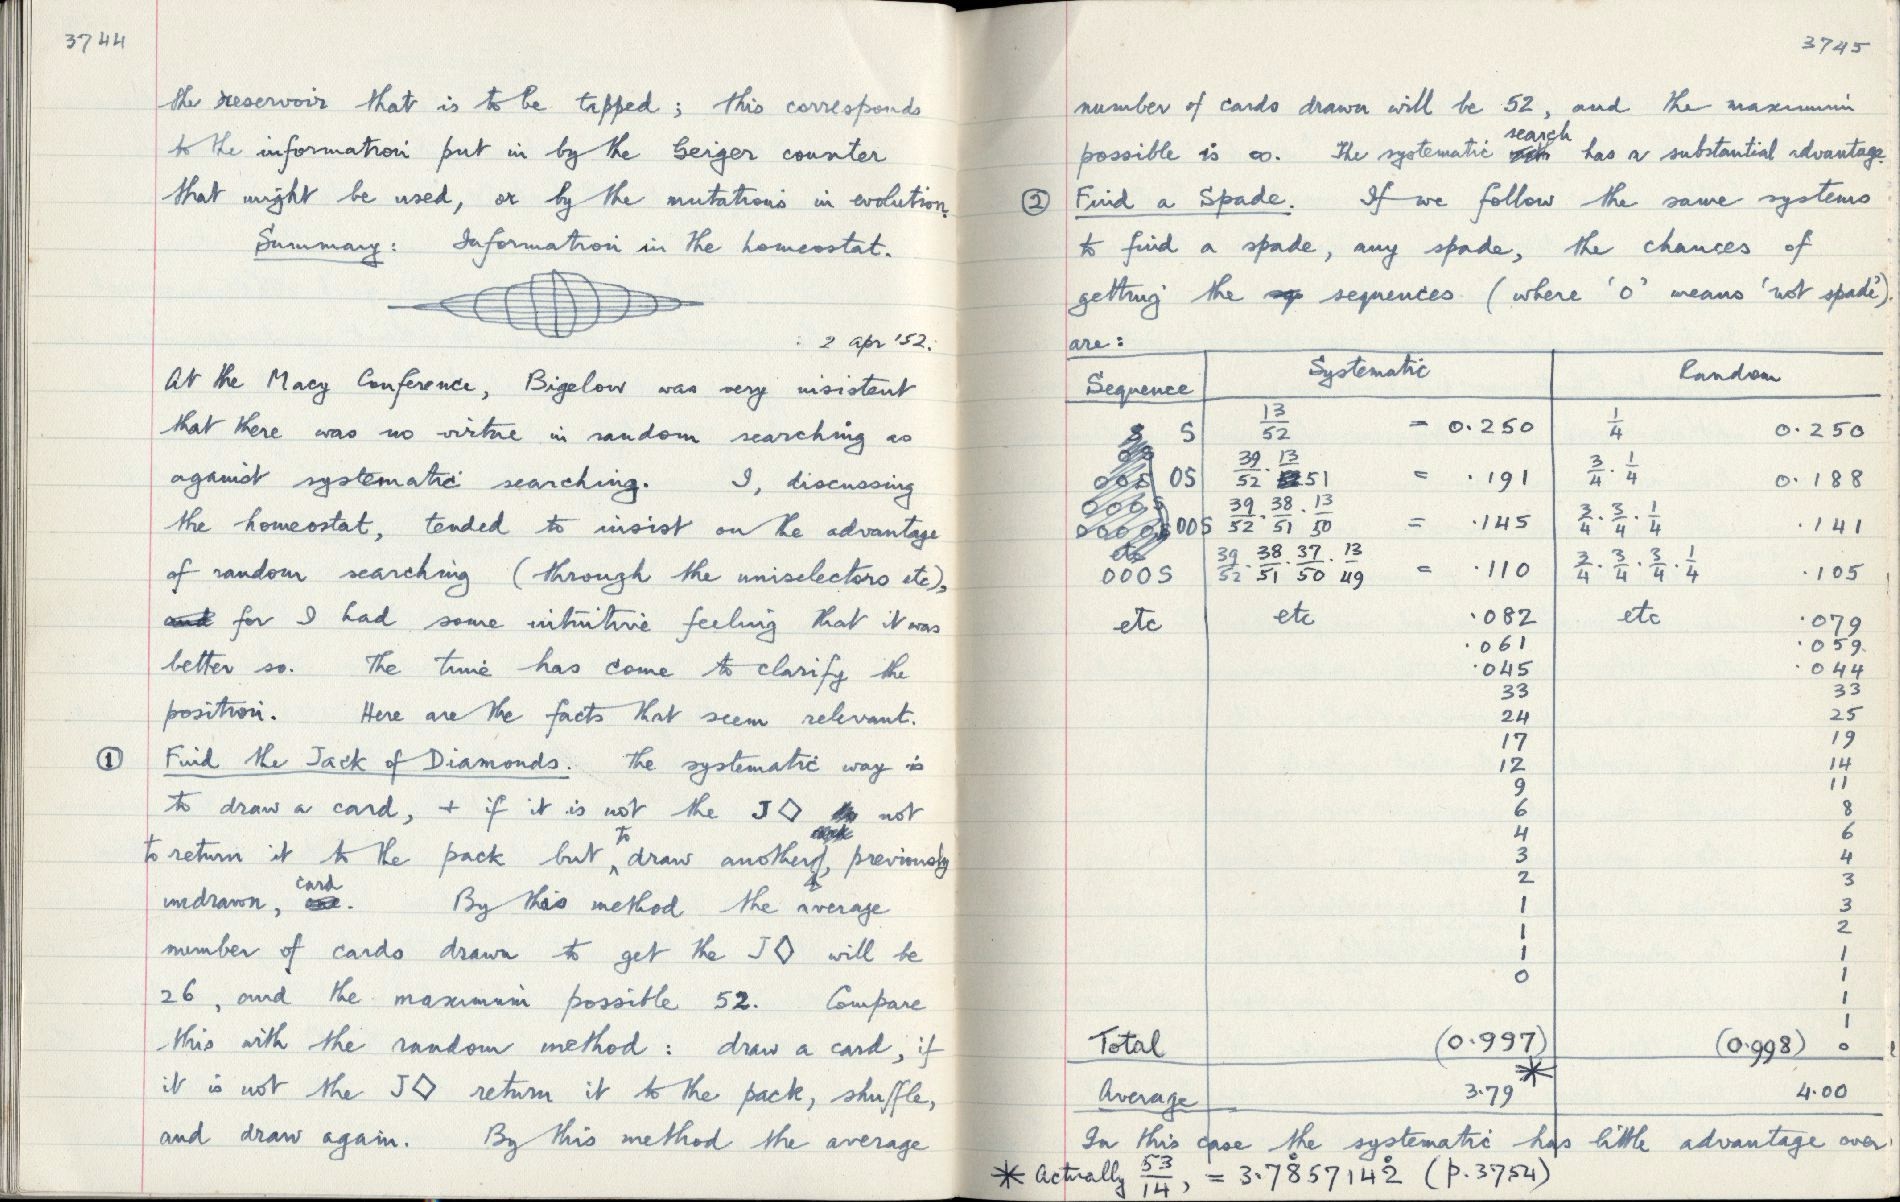 3744
the reservoir that is to be tapped; this corresponds
to the information put in by the Geiger counter
that might be used, or by the mutations in evolution.
Summary: Information in the homeostat.
2 Apr '52.
At the Macy Conference, Bigelow was very insistent
that there was no virtue in random searching as
against systematic searching. I, discussing
the homeostat, tended to insist on the advantage
of random searching (through the uniselectors etc),
and for I had some intuitive feeling that it was
better so. The time has come to clarify the
position. Here are the facts that seem relevant.
① Find the Jack of Diamonds. The systematic way is
to draw a card, + if it is not the J◇ not
to return it to the pack but to draw another, previously
undrawn, card. By this method the average
number of cards drawn to get the J◇ will be
26, and the maximum possible 52. Compare
this with the random method: draw a card, if
it is not the J◇ return it to the pack, shuffle,
and draw again. By this method the average
3745
number of cards drawn will be 52, and the maximum
possible is ∞. The systematic search has a substantial advantage.
② Find a Spade. If we follow the same systems
to find a spade, any spade, the chances of
getting the sequences (where 'O' means 'not spade')
are:
Sequence Systematic Random
S 13/52 = 0.250 1/4 0.250
OS 39/52 · 13/51 = .191 3/4 · 1/4 0.188
OOS 39/52 · 38/51 · 13/50 = .145 3/4 · 3/4 · 1/4 .141
OOOS 39/52 · 38/51 · 37/50 · 13/49 = .110 3/4 · 3/4 · 3/4 · 1/4 .105
etc etc .082 etc .079
.061 .059
.045 .044
33 33
24 25
17 19
12 14
9 11
6 8
4 6
3 4
2 3
1 3
1 2
1 1
0 1
1
1
Total (0.997) (0.998) 0
Average 3.79 * 4.00
In this case the systematic has little advantage over
* Actually 53/14, = 3.7̊857142̊ (p.3754)